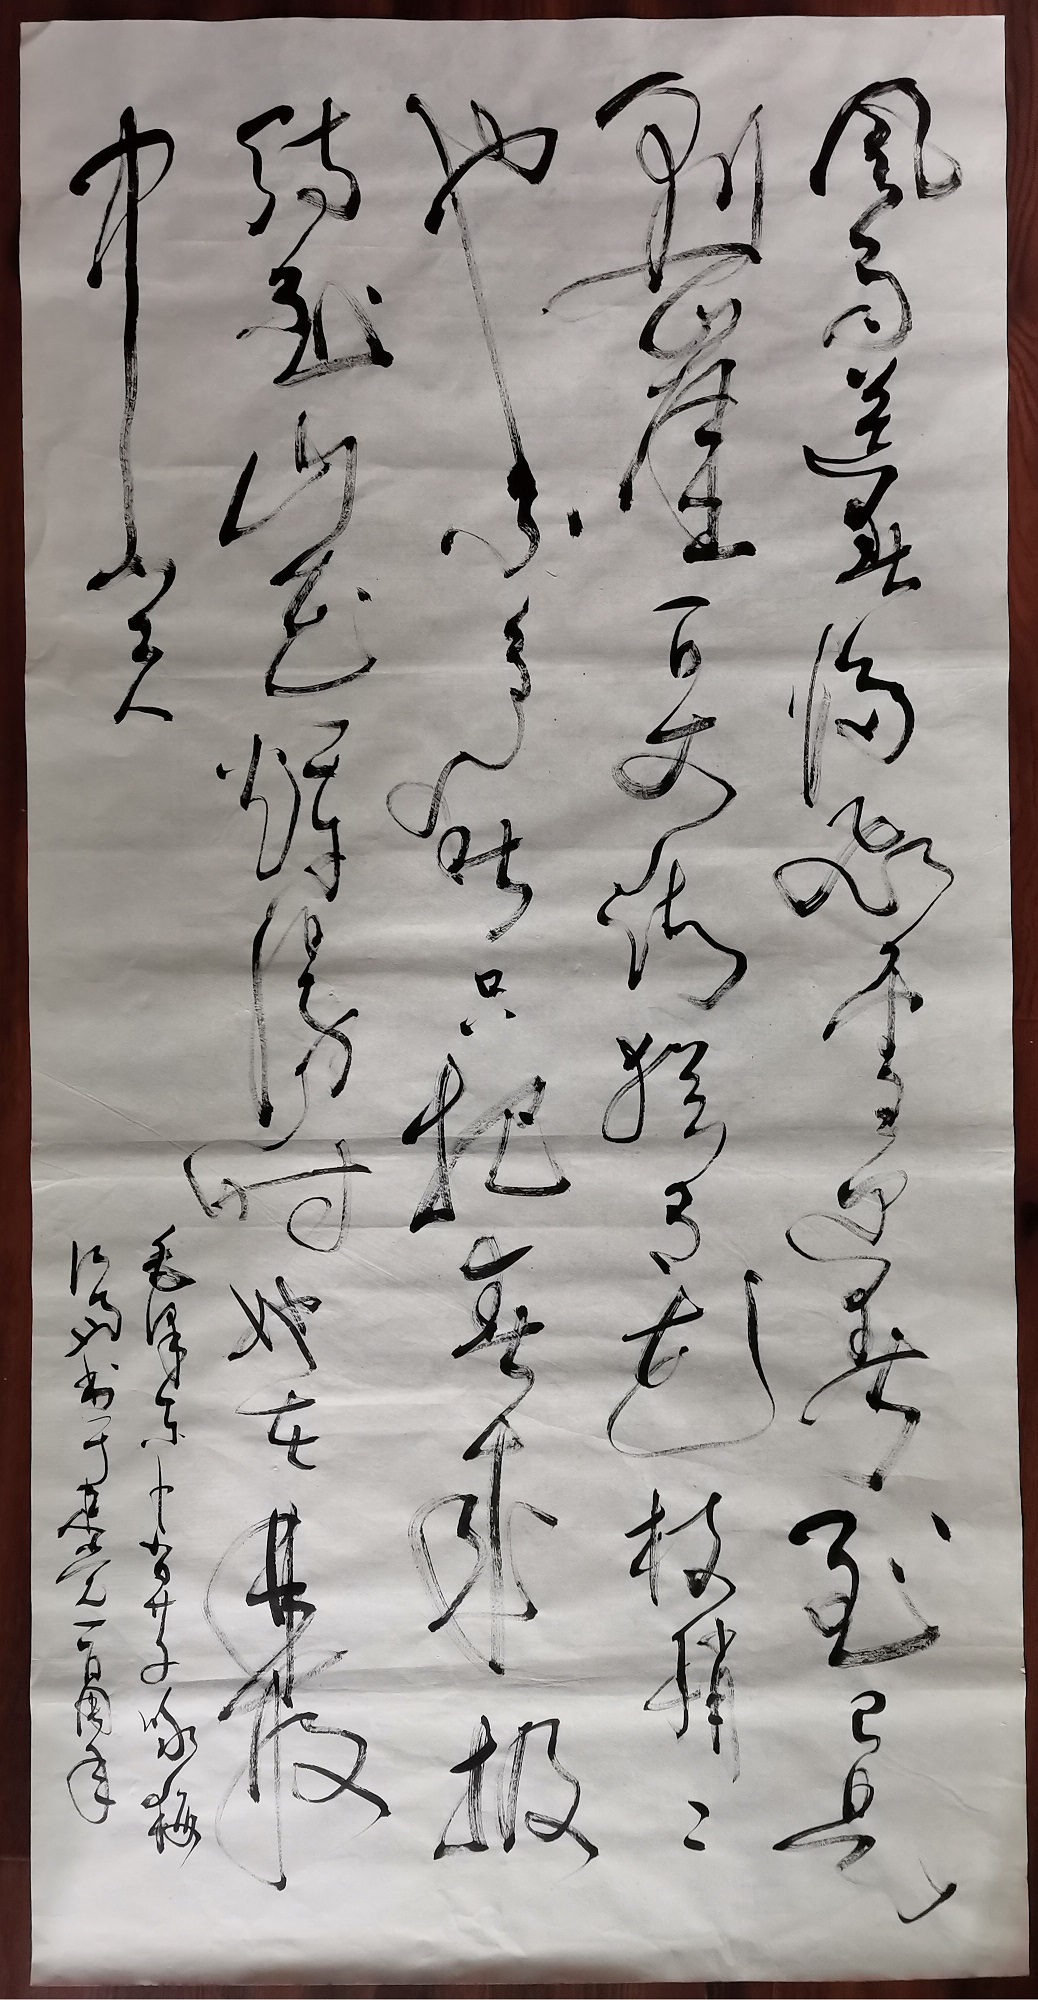 風雨送春歸飛雪迎春到已是
懸崖百丈冰猶有花枝俏〻
也不爭春只把春來報
待到山花爛漫時她在叢
中笑
毛澤東卜算子咏梅
书于建党一百周年